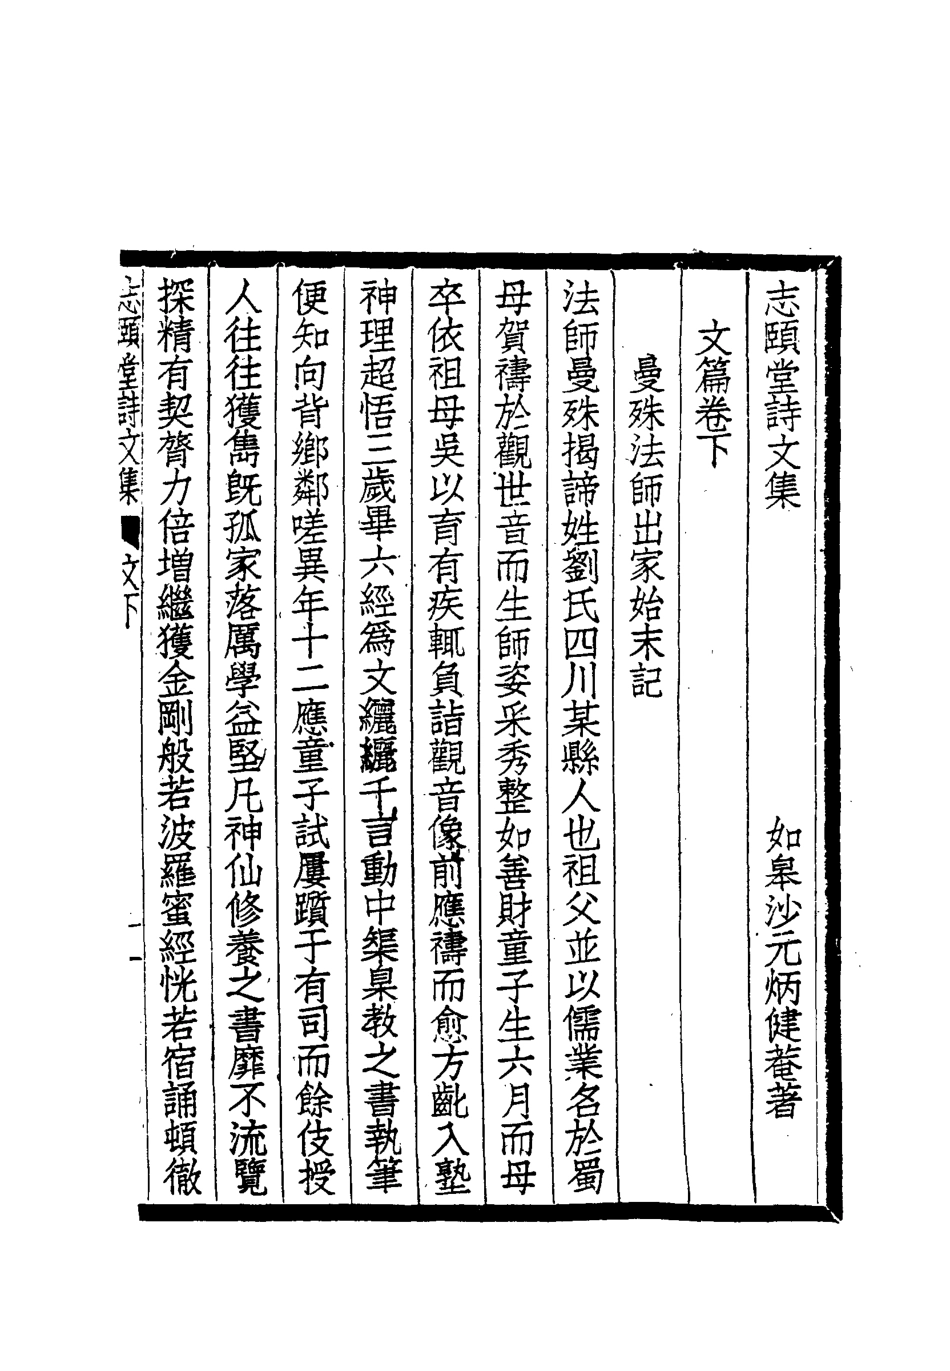 志頤堂詩文集　如皋沙元炳健菴著
文篇卷下
曼殊法師出家始末記
法師曼殊揭諦姓劉氏四川某縣人也祖父並以儒業名於蜀
母賀禱於觀世音而生師姿采秀整如善財童子生六月而母
卒依祖母吳以育有疾輒負詣觀音像前應禱而愈方齔入塾
神理超悟三歲畢六經爲文纚纚千言動中榘臬教之書執筆
便知向背鄉鄰嗟異年十二應童子試屢躓于有司而餘伎授
人往往獲雋旣孤家落厲學益堅凡神仙修養之書靡不流覽
探精有契膂力倍增繼獲金剛般若波羅蜜經恍若宿誦頓徹
志頤堂詩文集　文下　一